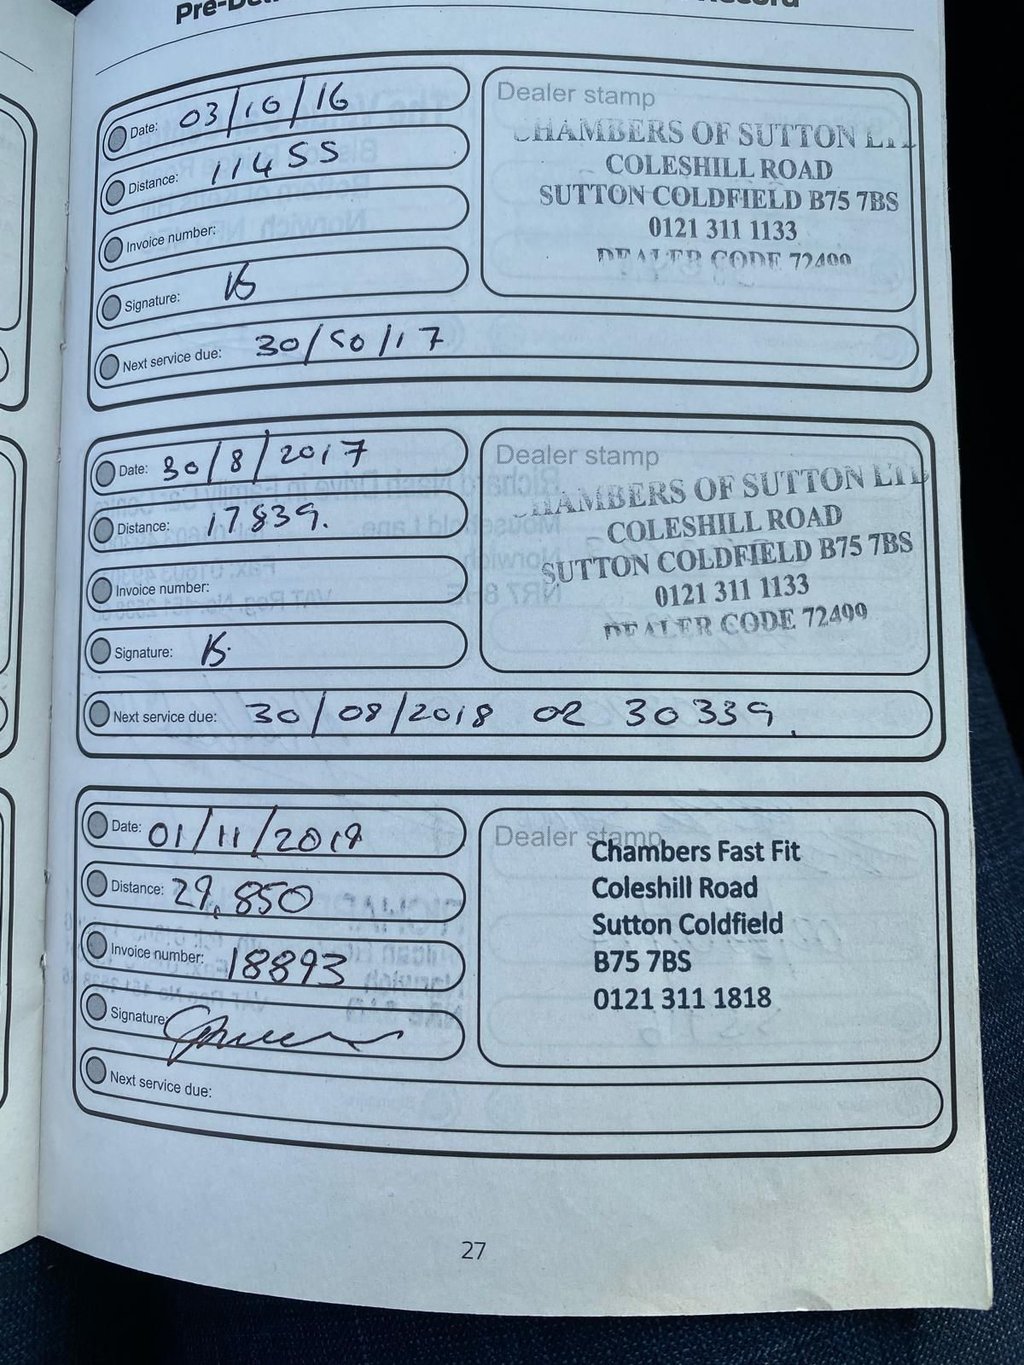 Date: 03/10/16
Distance: 11455
Invoice number:
Signature:
Next service due: 30/50/17
Dealer stamp
CHAMBERS OF SUTTON LTD
COLESHILL ROAD
SUTTON COLDFIELD B75 7BS
0121 311 1133
DEALER CODE 72499
Date: 30/8/2017
Distance: 17839.
Invoice number:
Signature:
Next service due: 30/08/2018 OR 30339
Dealer stamp
CHAMBERS OF SUTTON LTD
COLESHILL ROAD
SUTTON COLDFIELD B75 7BS
0121 311 1133
DEALER CODE 72499
Date: 01/11/2019
Distance: 29,850
Invoice number: 18893
Signature:
Next service due:
Dealer stamp
Chambers Fast Fit
Coleshill Road
Sutton Coldfield
B75 7BS
0121 311 1818
27